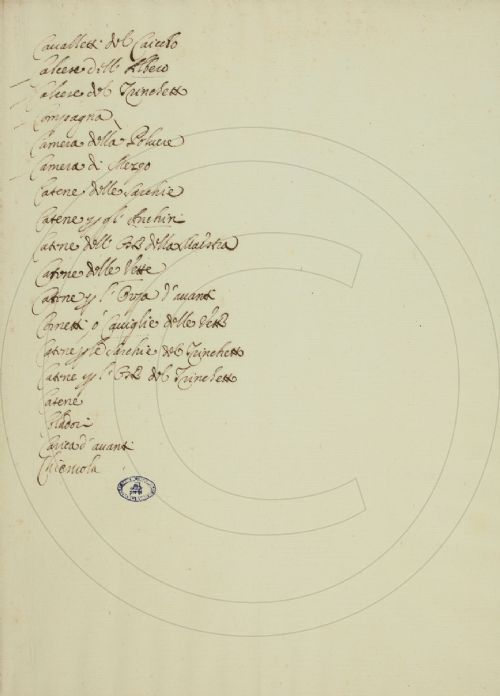 Cavalletti del Caiccho
Calcese dell' Albero
Calcese del Trinchetto
Compagna
Camera della Polvere
Camera di Mezzo
Catene delle Sarchie
Catene gl' Anchin
Catene dell' della Maistra
Catene delle Vette
Catene l' Orza d'avanti
Cornetti ò Caviglie delle Vette
Catene le Sarchie del Trinchetto
Catene l' del Trinchetto
Catene
Coladori
Carica d'avanti